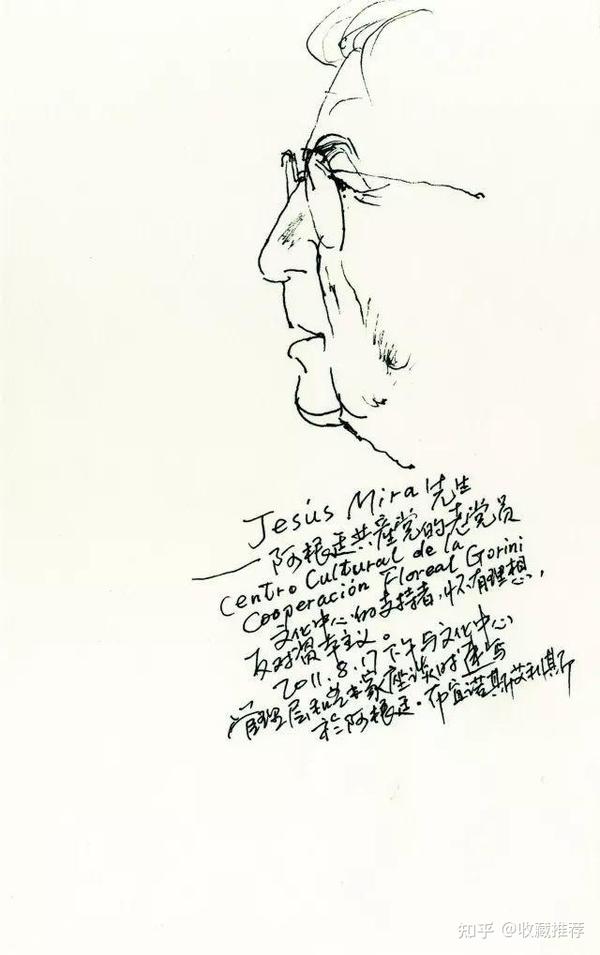 Jesús Mira 先生
——阿根廷共产党的老党员
Centro Cultural de la
Cooperación Floreal Gorini
文化中心的支持者,怀有理想,
反对资本主义。
2011.8.17下午与文化中心
管理层和艺术家座谈时速写
于阿根廷·布宜诺斯艾利斯
知乎 @收藏推荐